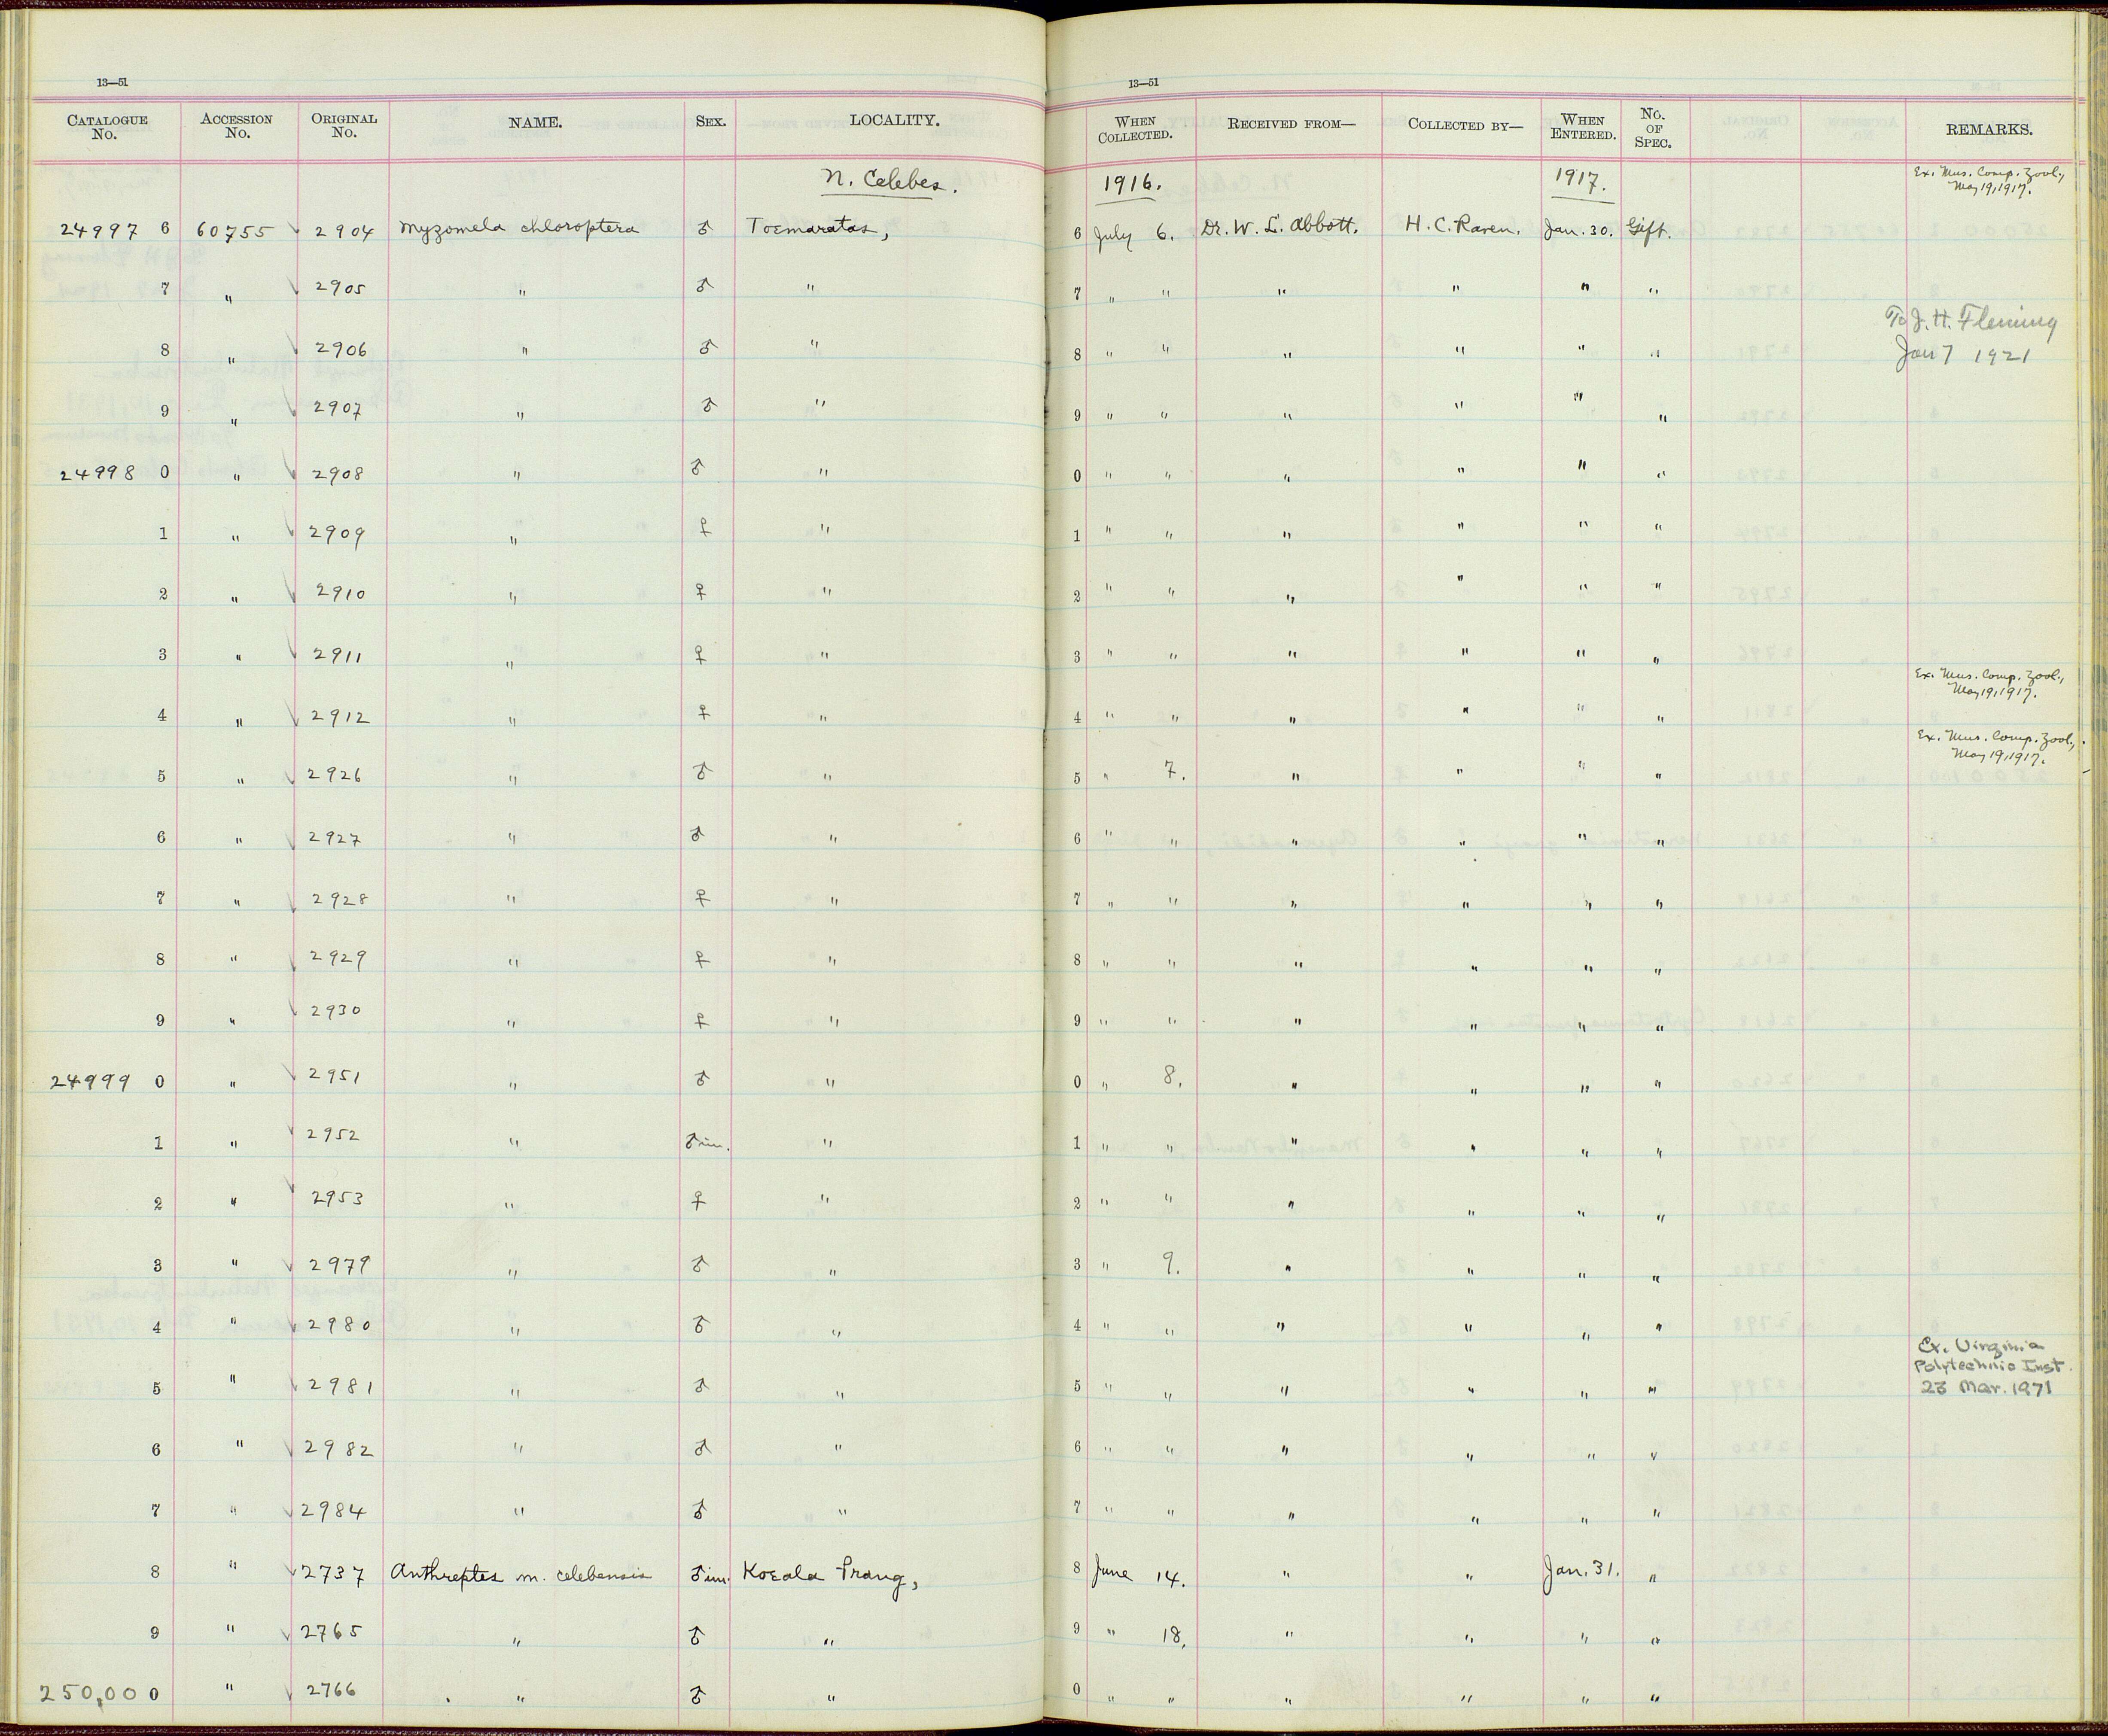 13—51
13—51
CATALOGUE No. ACCESSION No. ORIGINAL No. NAME. SEX. LOCALITY. WHEN COLLECTED. RECEIVED FROM— COLLECTED BY— WHEN ENTERED. No. OF SPEC. REMARKS.
N. Celebes. 1916. 1917. Ex. Mus. Comp. Zool., May 19, 1917.
24997 6 60755 2904 Myzomela chloroptera ♂ Toemaratas, 6 July 6. Dr. W. L. Abbott. H. C. Raven. Jan. 30. Gift.
7 " 2905 " ♂ " 7 " " " " " "
To J. H. Fleming
8 " 2906 " ♂ " 8 " " " " " " Jan 7 1921
9 " 2907 " ♂ " 9 " " " " " "
24998 0 " 2908 " ♂ " 0 " " " " " "
1 " 2909 " ♀ " 1 " " " " " "
2 " 2910 " ♀ " 2 " " " " " "
3 " 2911 " ♀ " 3 " " " " " "
4 " 2912 " ♀ " 4 " " " " " " Ex. Mus. Comp. Zool., May 19, 1917.
5 " 2926 " ♂ " 5 " 7. " " " " Ex. Mus. Comp. Zool., May 19, 1917.
6 " 2927 " ♂ " 6 " " " " " "
7 " 2928 " ♀ " 7 " " " " " "
8 " 2929 " ♀ " 8 " " " " " "
9 " 2930 " ♀ " 9 " " " " " "
24999 0 " 2951 " ♂ " 0 " 8. " " " "
1 " 2952 " ♂ im. " 1 " " " " " "
2 " 2953 " ♀ " 2 " " " " " "
3 " 2979 " ♂ " 3 " 9. " " " "
4 " 2980 " ♂ " 4 " " " " " "
5 " 2981 " ♂ " 5 " " " " " " Ex. Virginia Polytechnic Inst. 23 Mar. 1971
6 " 2982 " ♂ " 6 " " " " " "
7 " 2984 " ♂ " 7 " " " " " "
8 " 2737 Anthreptes m. celebensis ♂ im. Koeala Prang, 8 June 14. " " Jan. 31. "
9 " 2765 " ♂ " 9 " 18. " " " "
250,00 0 " 2766 " ♂ " 0 " " " " " "